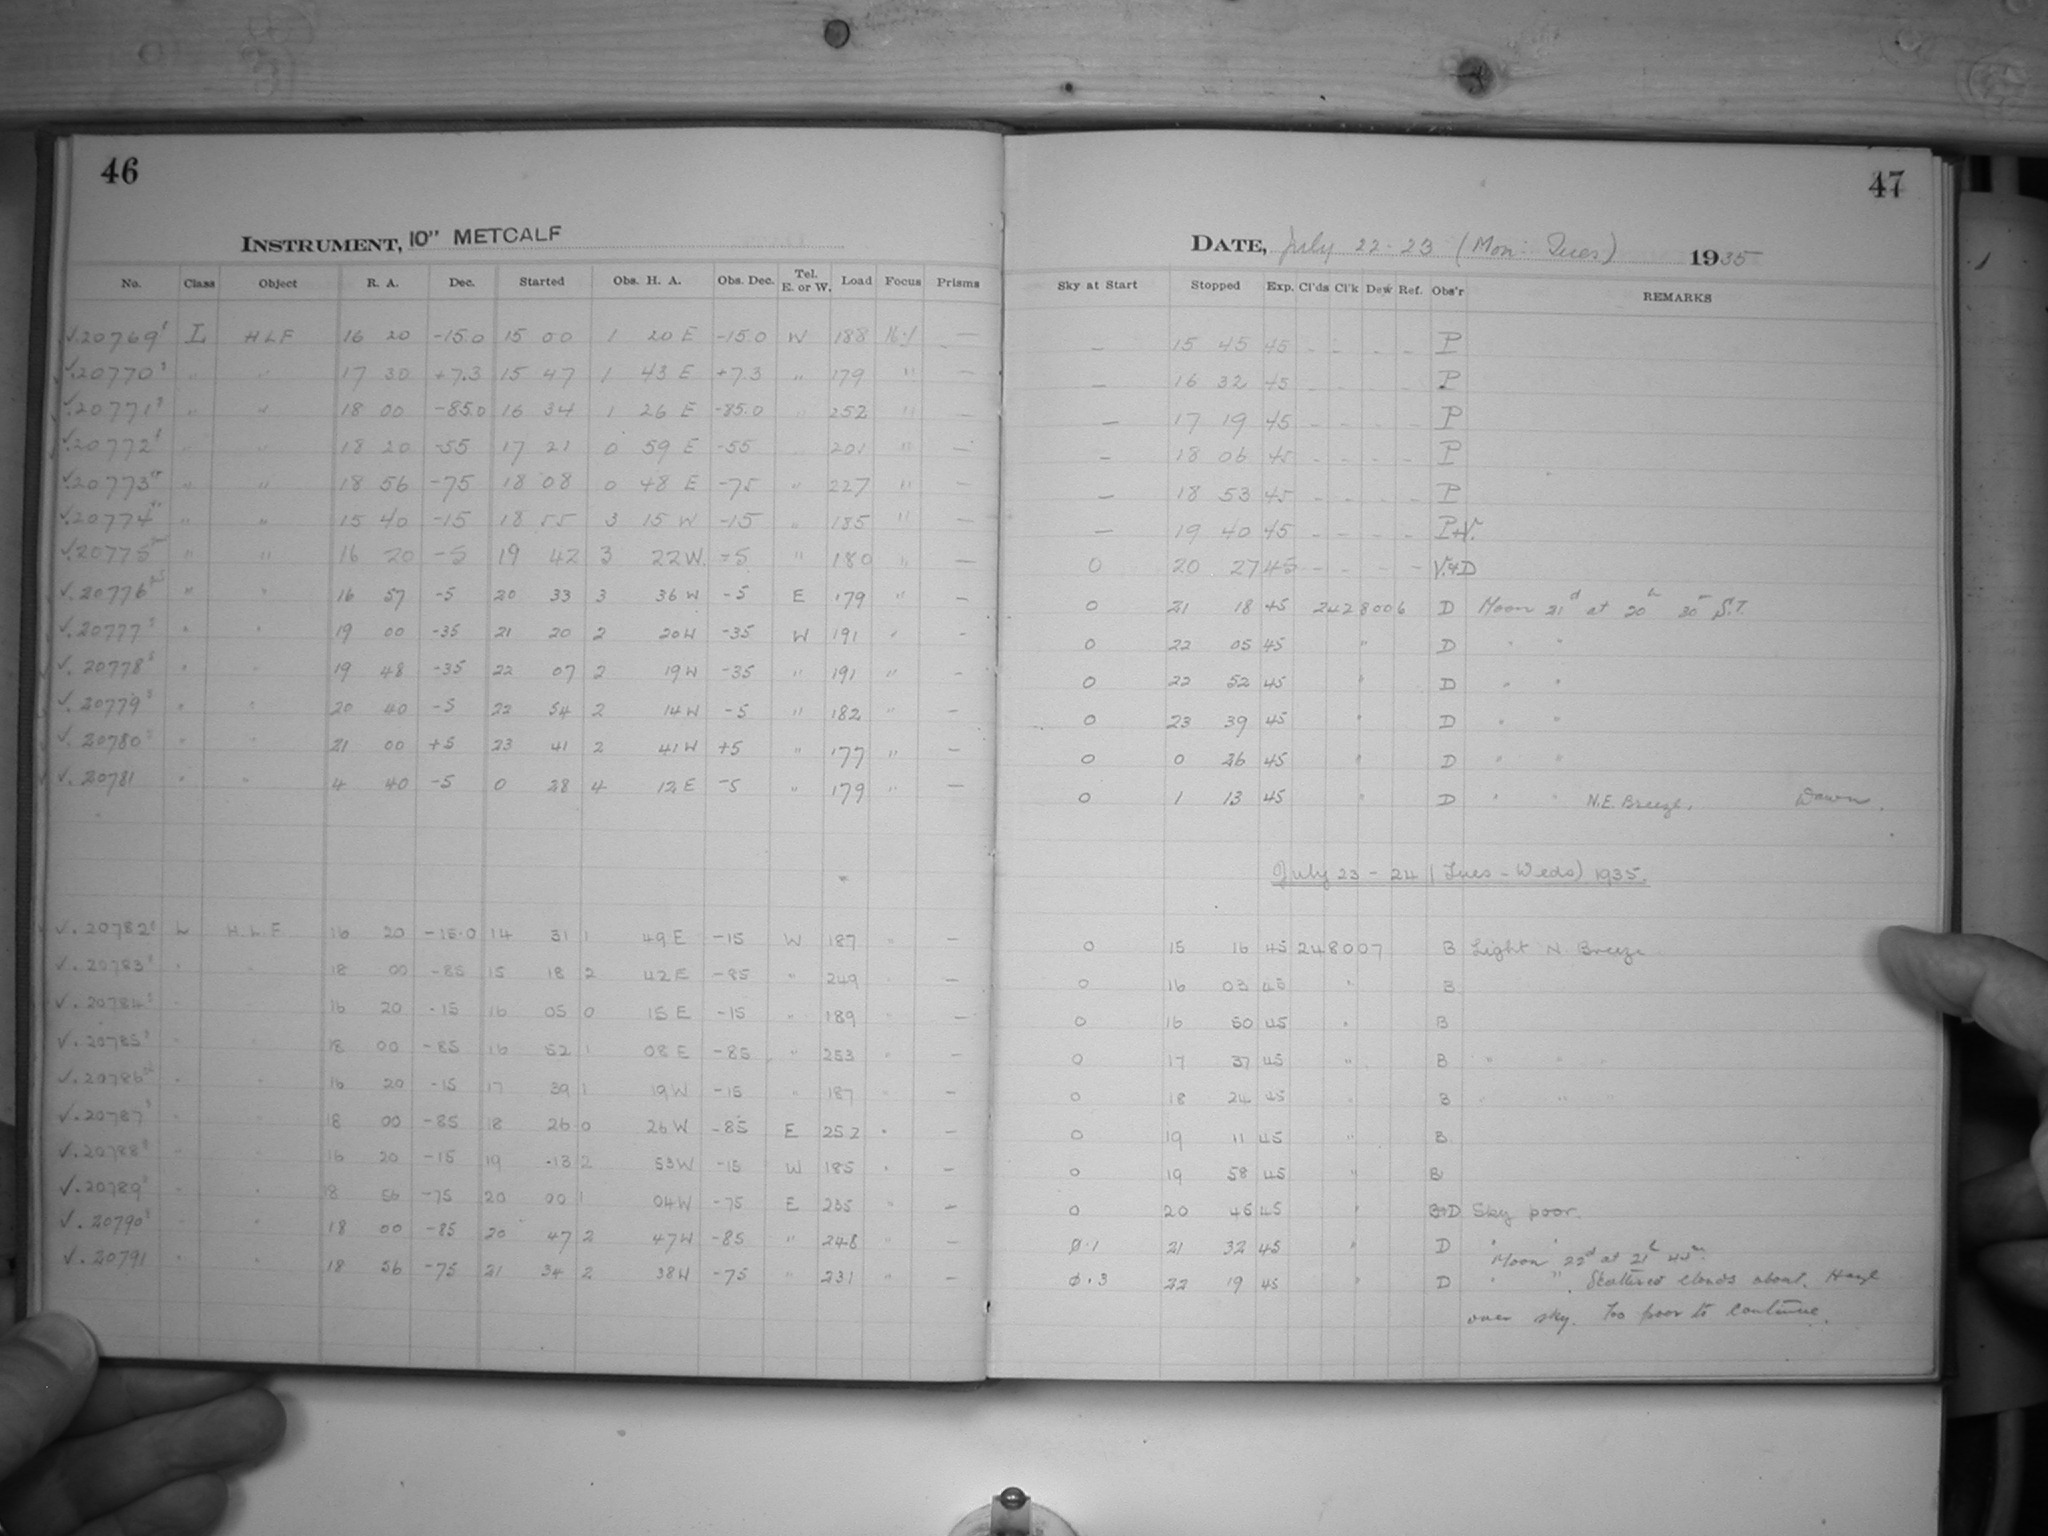 46
47
INSTRUMENT, 10" METCALF
DATE, July 22-23 (Mon: Tues) 1935
No. Class Object R. A. Dec. Started Obs. H. A. Obs. Dec. Tel. E. or W. Load Focus Prisms Sky at Start Stopped Exp. Cl'ds Cl'k Dew Ref. Obs'r REMARKS
√.20769 L HLF 16 20 -15.0 15 00 1 20 E -15.0 W 188 16.1 — — 15 45 45 - - - - P
√.20770 " " 17 30 +7.3 15 47 1 43 E +7.3 " 179 " — — 16 32 45 - - - - P
√.20771 " " 18 00 -85.0 16 34 1 26 E -85.0 " 252 " — — 17 19 45 - - - - P
√.20772 " " 18 20 -55 17 21 0 59 E -55 " 201 " — — 18 06 45 - - - - P
√.20773 " " 18 56 -75 18 08 0 48 E -75 " 227 " — — 18 53 45 - - - - P
√.20774 " " 15 40 -15 18 55 3 15 W -15 " 185 " — — 19 40 45 - - - - P+V.
√.20775 " " 16 20 -5 19 42 3 22 W. -5 " 180 " — 0 20 27 45 - - - - V.+D
√.20776 " " 16 57 -5 20 33 3 36 W -5 E 179 " — 0 21 18 45 2428006 D Moon 21d at 20h 30m S.T.
√.20777 " " 19 00 -35 21 20 2 20 W -35 W 191 " - 0 22 05 45 " D " "
√.20778 " " 19 48 -35 22 07 2 19 W -35 " 191 " - 0 22 52 45 " D " "
√.20779 " " 20 40 -5 22 54 2 14 W -5 " 182 " — 0 23 39 45 " D " "
√.20780 " " 21 00 +5 23 41 2 41 W +5 " 177 " — 0 0 26 45 " D " "
√.20781 " " 4 40 -5 0 28 4 12 E -5 " 179 " — 0 1 13 45 " D " " N.E. Breeze. Dawn.
July 23 - 24 (Tues - Weds) 1935.
√.20782 L H.L.F 16 20 -15.0 14 31 1 49 E -15 W 187 " — 0 15 16 45 248007 B Light N Breeze
√.20783 " " 18 00 -85 15 18 2 42 E -85 " 249 " — 0 16 03 45 " B
√.20784 " " 16 20 -15 16 05 0 15 E -15 " 189 " — 0 16 50 45 " B
√.20785 " " 18 00 -85 16 52 1 08 E -85 " 253 " — 0 17 37 45 " B " " "
√.20786 " " 16 20 -15 17 39 1 19 W -15 " 187 " — 0 18 24 45 " B " " "
√.20787 " " 18 00 -85 18 26 0 26 W -85 E 252 " — 0 19 11 45 " B
√.20788 " " 16 20 -15 19 13 2 53 W -15 W 185 " — 0 19 58 45 " B
√.20789 " " 18 56 -75 20 00 1 04 W -75 E 235 " — 0 20 45 45 " B+D Sky poor.
√.20790 " " 18 00 -85 20 47 2 47 W -85 " 248 " — 0.1 21 32 45 " D " Moon 22d at 21h 45m.
√.20791 " " 18 56 -75 21 34 2 38 W -75 " 231 " — 0.3 22 19 45 " D " ". Scattered clouds about. Haze
over sky. Too poor to continue.